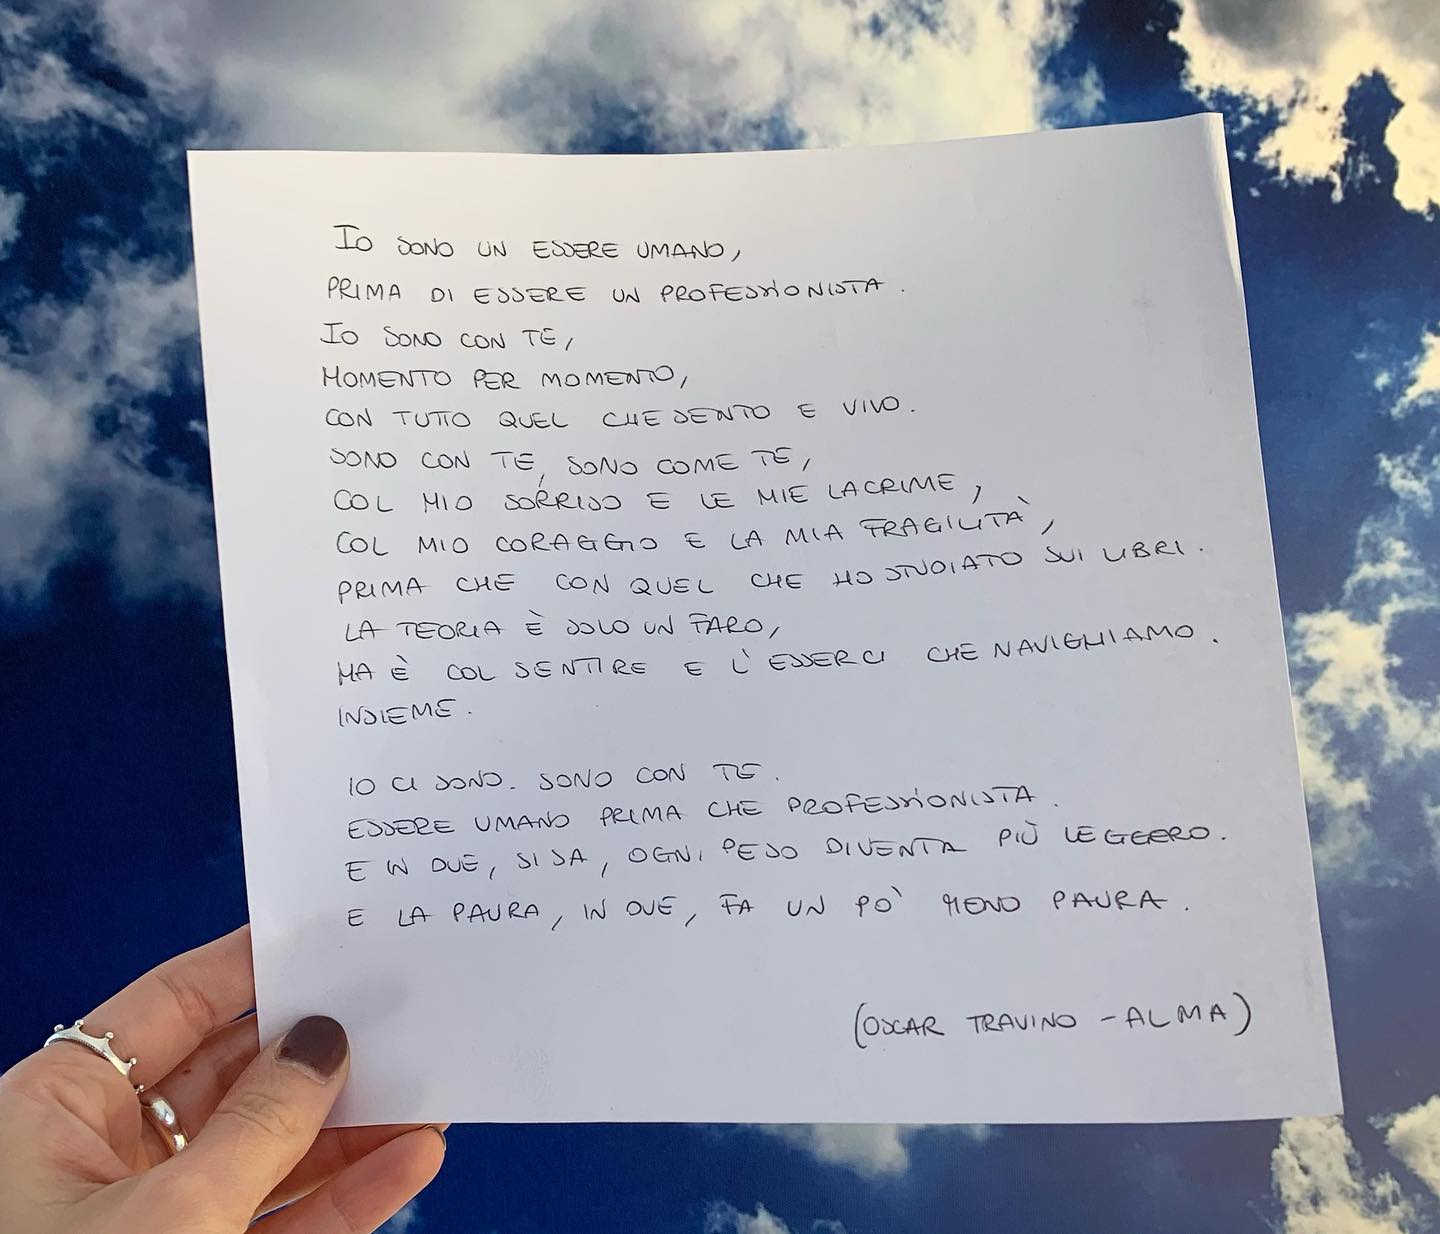 Io SONO UN ESSERE UMANO,
PRIMA DI ESSERE UN PROFESSIONISTA.
Io SONO CON TE,
MOMENTO PER MOMENTO,
CON TUTTO QUEL CHE SENTO E VIVO.
SONO CON TE, SONO COME TE,
COL MIO SORRISO E LE MIE LACRIME,
COL MIO CORAGGIO E LA MIA FRAGILITÀ,
PRIMA CHE CON QUEL CHE HO STUDIATO SUI LIBRI.
LA TEORIA È SOLO UN FARO,
MA È COL SENTIRE E L'ESSERCI CHE NAVIGHIAMO.
INSIEME.
IO CI SONO. SONO CON TE.
ESSERE UMANO PRIMA CHE PROFESSIONISTA.
E IN DUE, SI SA, OGNI PESO DIVENTA PIÙ LEGGERO.
E LA PAURA, IN DUE, FA UN PO' MENO PAURA.
(OSCAR TRAVINO - ALMA)